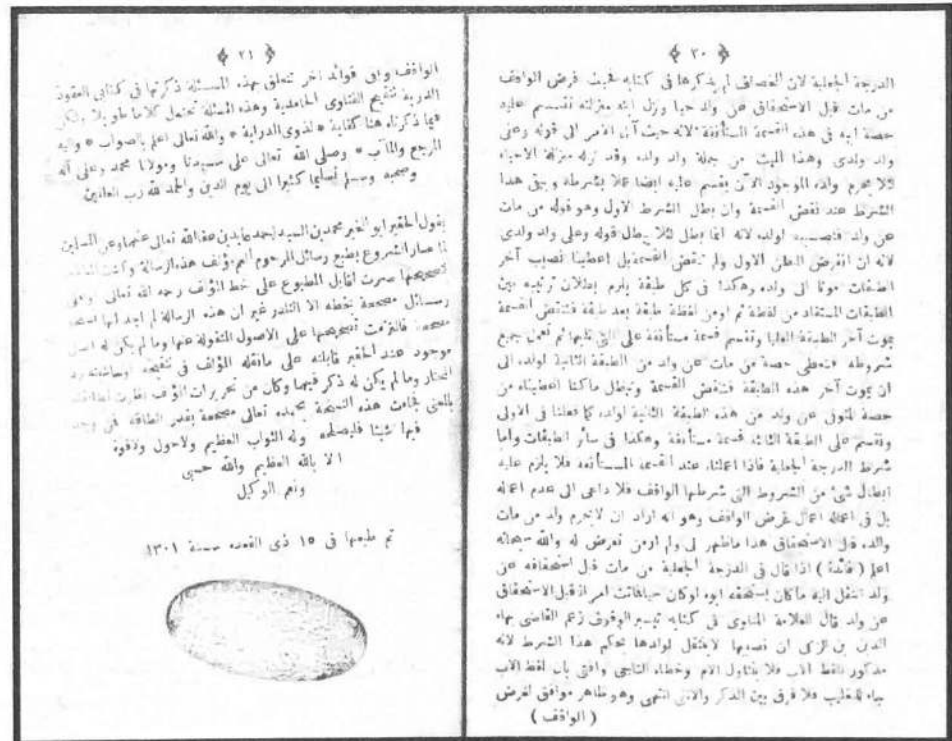 ﴿ ٣٠ ﴾
الدرجة الجعلية لان الخصاف لم يذكرها فى كتابه فحيث فرض الواقف
من مات قبل الاستحقاق عن ولد حيا ونزل ابنه منزلته تقسم عليه
حصة ابيه فى هذه القسمة المستأنفة لانه حيث آل الامر الى قوله وعلى
ولد ولدى وهذا الميت من جملة ولد ولده وقد نزله منزلة الاحياء
لئلا يحرم ولده الموجود الآن يقسم عليه ايضا عملا بشرطه ويبقى هذا
الشرط عند نقض القسمة وان بطل الشرط الاول وهو قوله من مات
عن ولد فنصيبه لولده لانه انما بطل لئلا يبطل قوله وعلى ولد ولدى
لانه ان انقرض البطن الاول ولم تنقض القسمة بل اعطينا نصيب آخر
الطبقات موتا الى ولده وهكذا فى كل طبقة يلزم بطلان ترتيبه بين
الطبقات المستفاد من لفظة ثم او من لفظة طبقة بعد طبقة فتنقض القسمة
بموت آخر الطبقة العليا وتقسم قسمة مستأنفة على التى تليها ثم نعمل بجميع
شروطه فنعطى حصة من مات عن ولد من الطبقة الثانية لولده الى
ان يموت آخر هذه الطبقة فتنقض القسمة ونبطل ماكنا اعطيناه من
حصة المتوفى عن ولد من هذه الطبقة الثانية لولده كما فعلنا فى الاولى
ونقسم على الطبقة الثالثة قسمة مستأنفة وهكذا فى سائر الطبقات واما
شرط الدرجة الجعلية فاذا اعملناه عند القسمة المستأنفة فلا يلزم عليه
ابطال شئ من الشروط التى شرطها الواقف فلا داعى الى عدم اعماله
بل فى اعماله اعمال غرض الواقف وهو انه اراد ان لايحرم ولد من مات
والده قبل الاستحقاق هذا ماظهر لى ولم ارمن تعرض له والله سبحانه
اعلم ( فائدة ) اذا قال فى الدرجة الجعلية من مات قبل استحقاقه عن
ولد انتقل اليه ماكان يستحقه ابوه لوكان حيا فاتت امراة قبل الاستحقاق
عن ولد قال العلامة المناوى فى كتابه تيسير الوقوف زعم القاضى بهاء
الدين بن الزكى ان نصيبها لاينتقل لولدها بحكم هذا الشرط لانه
مذكور بلفظ الاب فلا يتناول الام وخطاه التاجى وافتى بان لفظ الاب
جاء للتغليب فلا فرق بين الذكر والانثى انتهى وهو ظاهر موافق لغرض
( الواقف )
﴿ ٣١ ﴾
الواقف وفى فوائد اخر تتعلق بهذه المسئلة ذكرتها فى كتابى العقود
الدرية تنقيح الفتاوى الحامدية وهذه المسئلة تحتمل كلاما طويلا ولكن
فيما ذكرناه هنا كفاية * لذوى الدراية * والله تعالى اعلم بالصواب * واليه
المرجع والمآب * وصلى الله تعالى على سيدنا ومولانا محمد وعلى آله
وصحبه وسلم تسليما كثيرا الى يوم الدين والحمد لله رب العالمين
يقول الحقير ابو الخير محمد بن السيد احمد عابدين عفا الله تعالى عنهما وعن المسلمين
لما صار الشروع بطبع رسائل المرحوم العم مؤلف هذه الرسالة وكنت
لتصحيحها صرت اقابل المطبوع على خط المؤلف رحمه الله تعالى
رسائل مصححة بخطه الا النادر غير ان هذه الرسالة لم اجد لها نسخة
مصححة فالتزمت تصحيحها على الاصول المنقولة عنها وما لم يكن له اصل
موجود عند الحقير قابلته على مانقله المؤلف فى تنقيحه او حاشيته رد
المحتار وما لم يكن له ذكر فيهما وكان من تحريرات المؤلف
بالمعنى فجاءت هذه النسخة بحمده تعالى مصححة بقدر الطاقة فمن وجد
فيها شيئا فليصلحه وله الثواب العظيم ولاحول ولاقوة
الا بالله العظيم والله حسبى
ونعم الوكيل
تم طبعها فى ١٥ ذى القعده سنة ١٣٠١